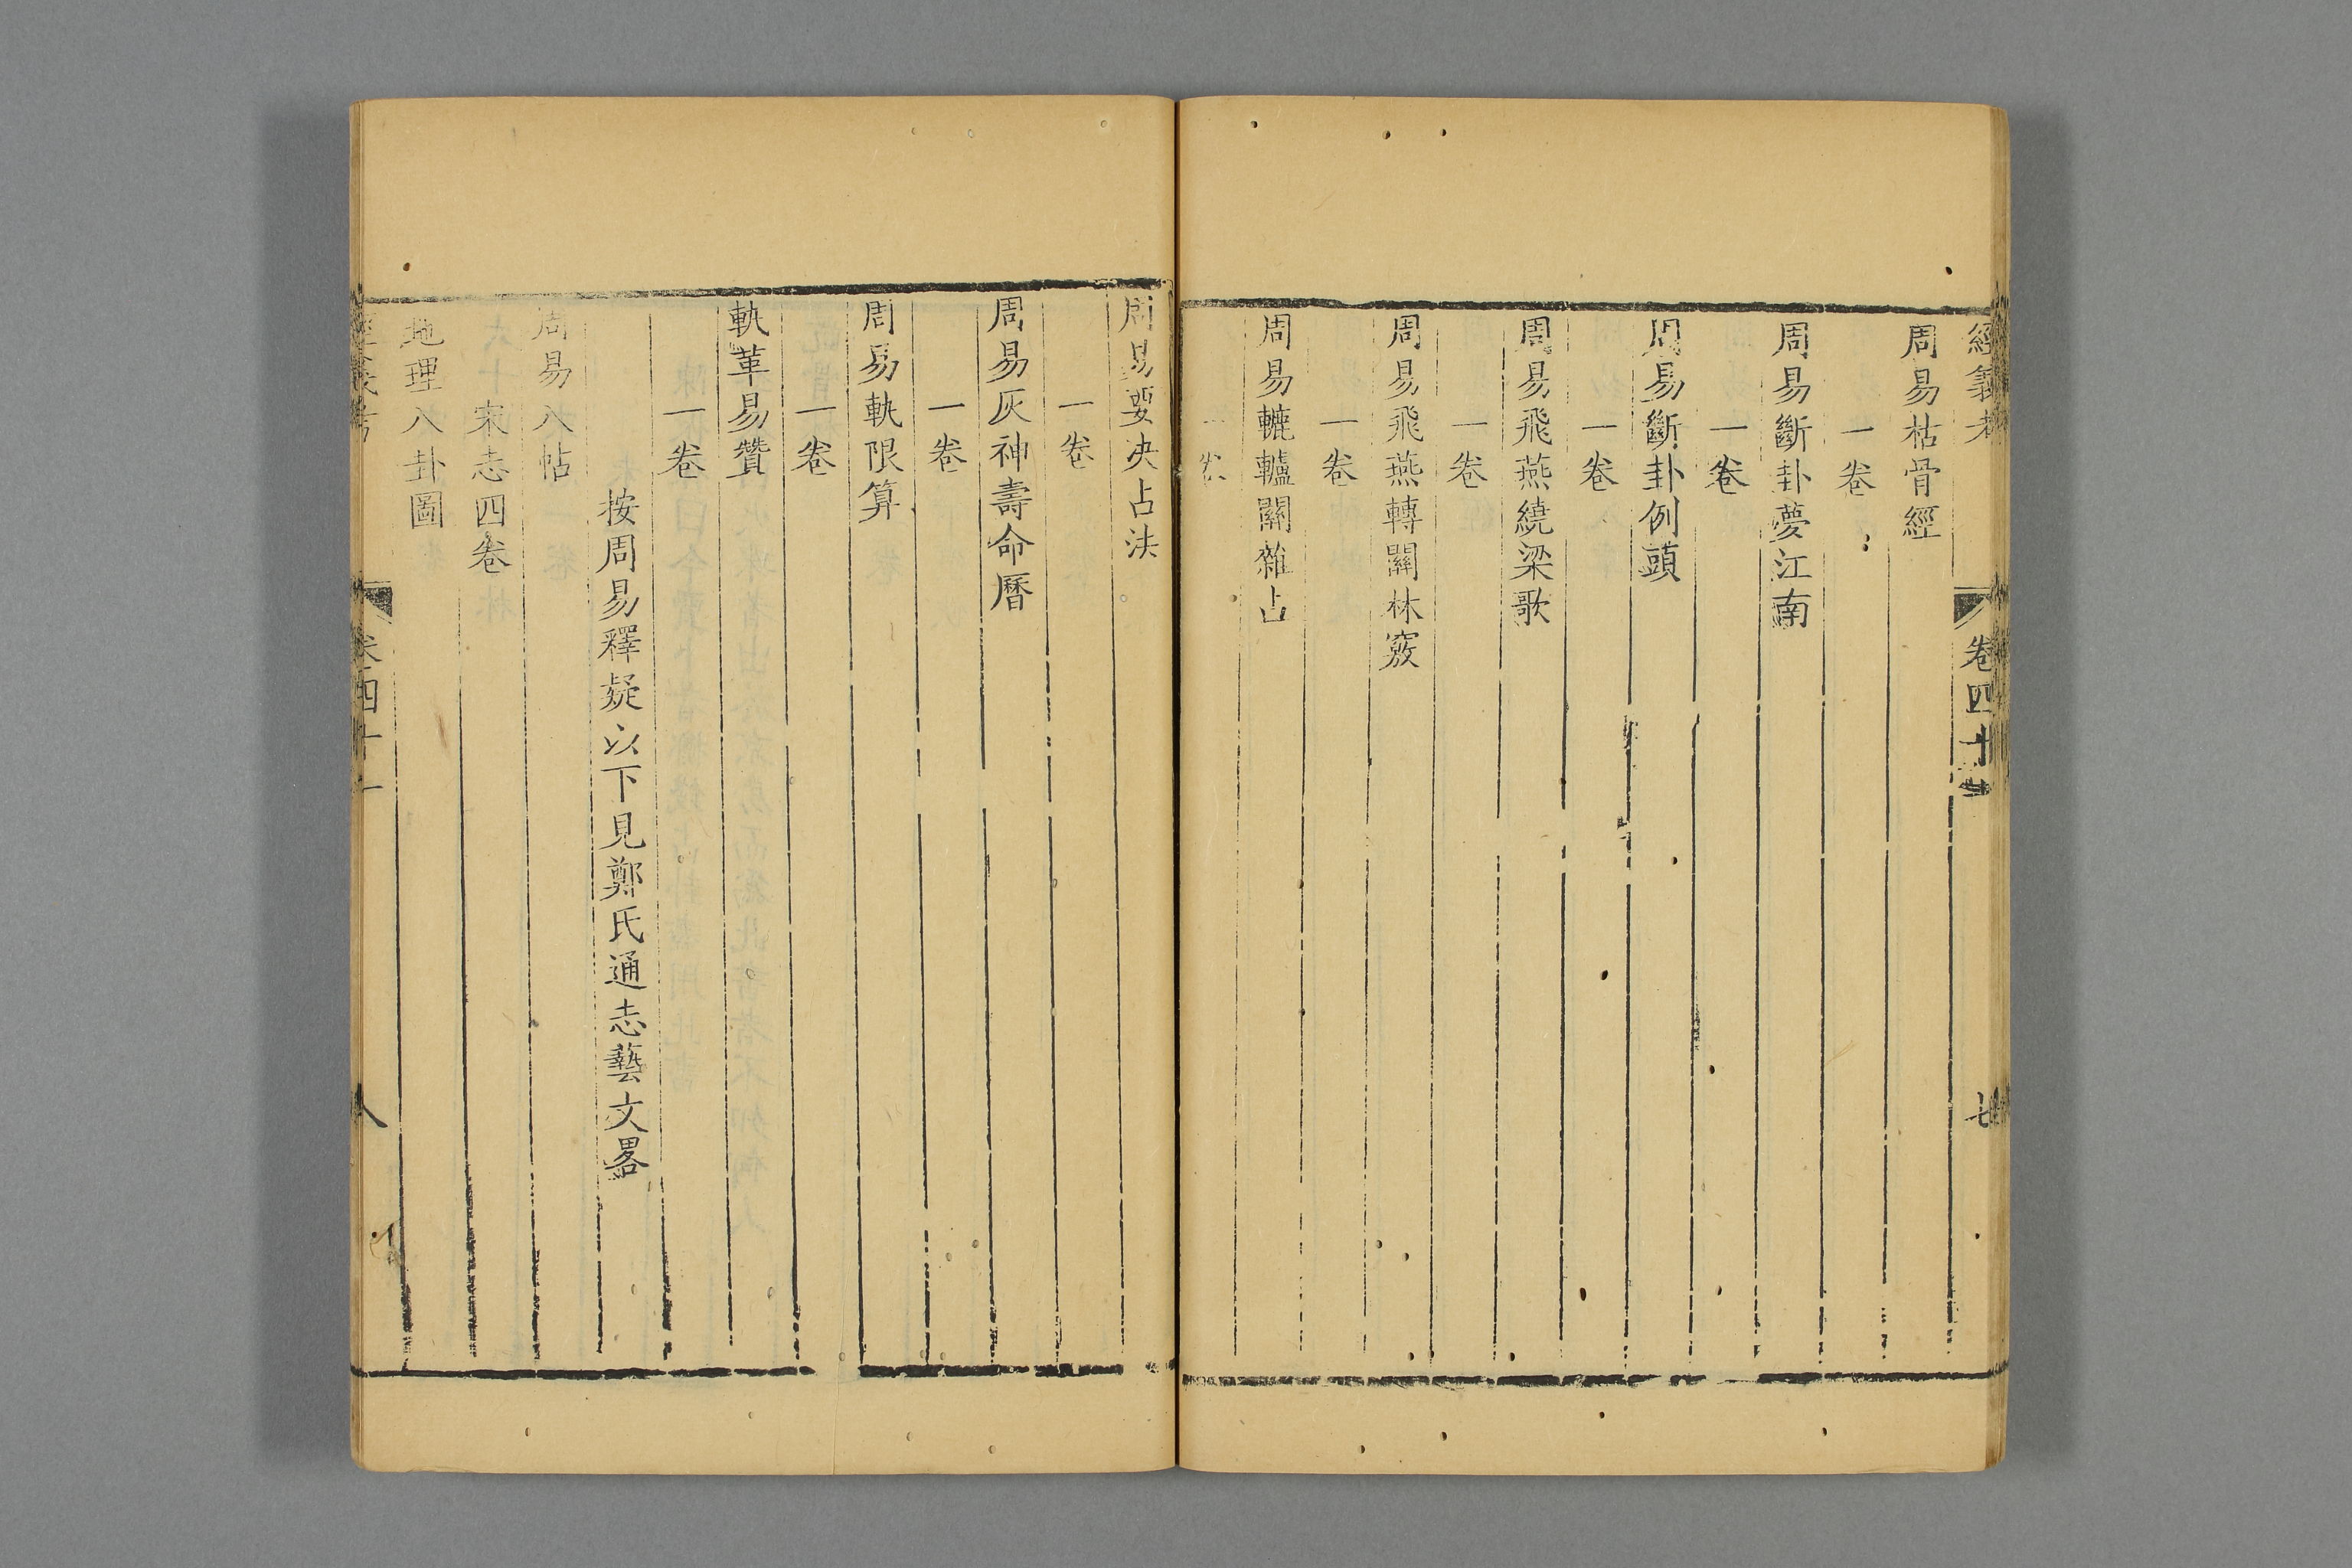 經義考 卷四十 七
周易枯骨經
一卷
周易斷卦夢江南
一卷
周易斷卦例頭
一卷
周易飛燕繞梁歌
一卷
周易飛燕轉關林竅
一卷
周易轆轤關雜占
一卷
周易要决占法
一卷
周易灰神壽命曆
一卷
周易軌限算
一卷
軌革易贊
一卷
按周易釋疑以下見鄭氏通志藝文畧
周易八帖
宋志四卷
地理八卦圖
經義考 卷四十一 八